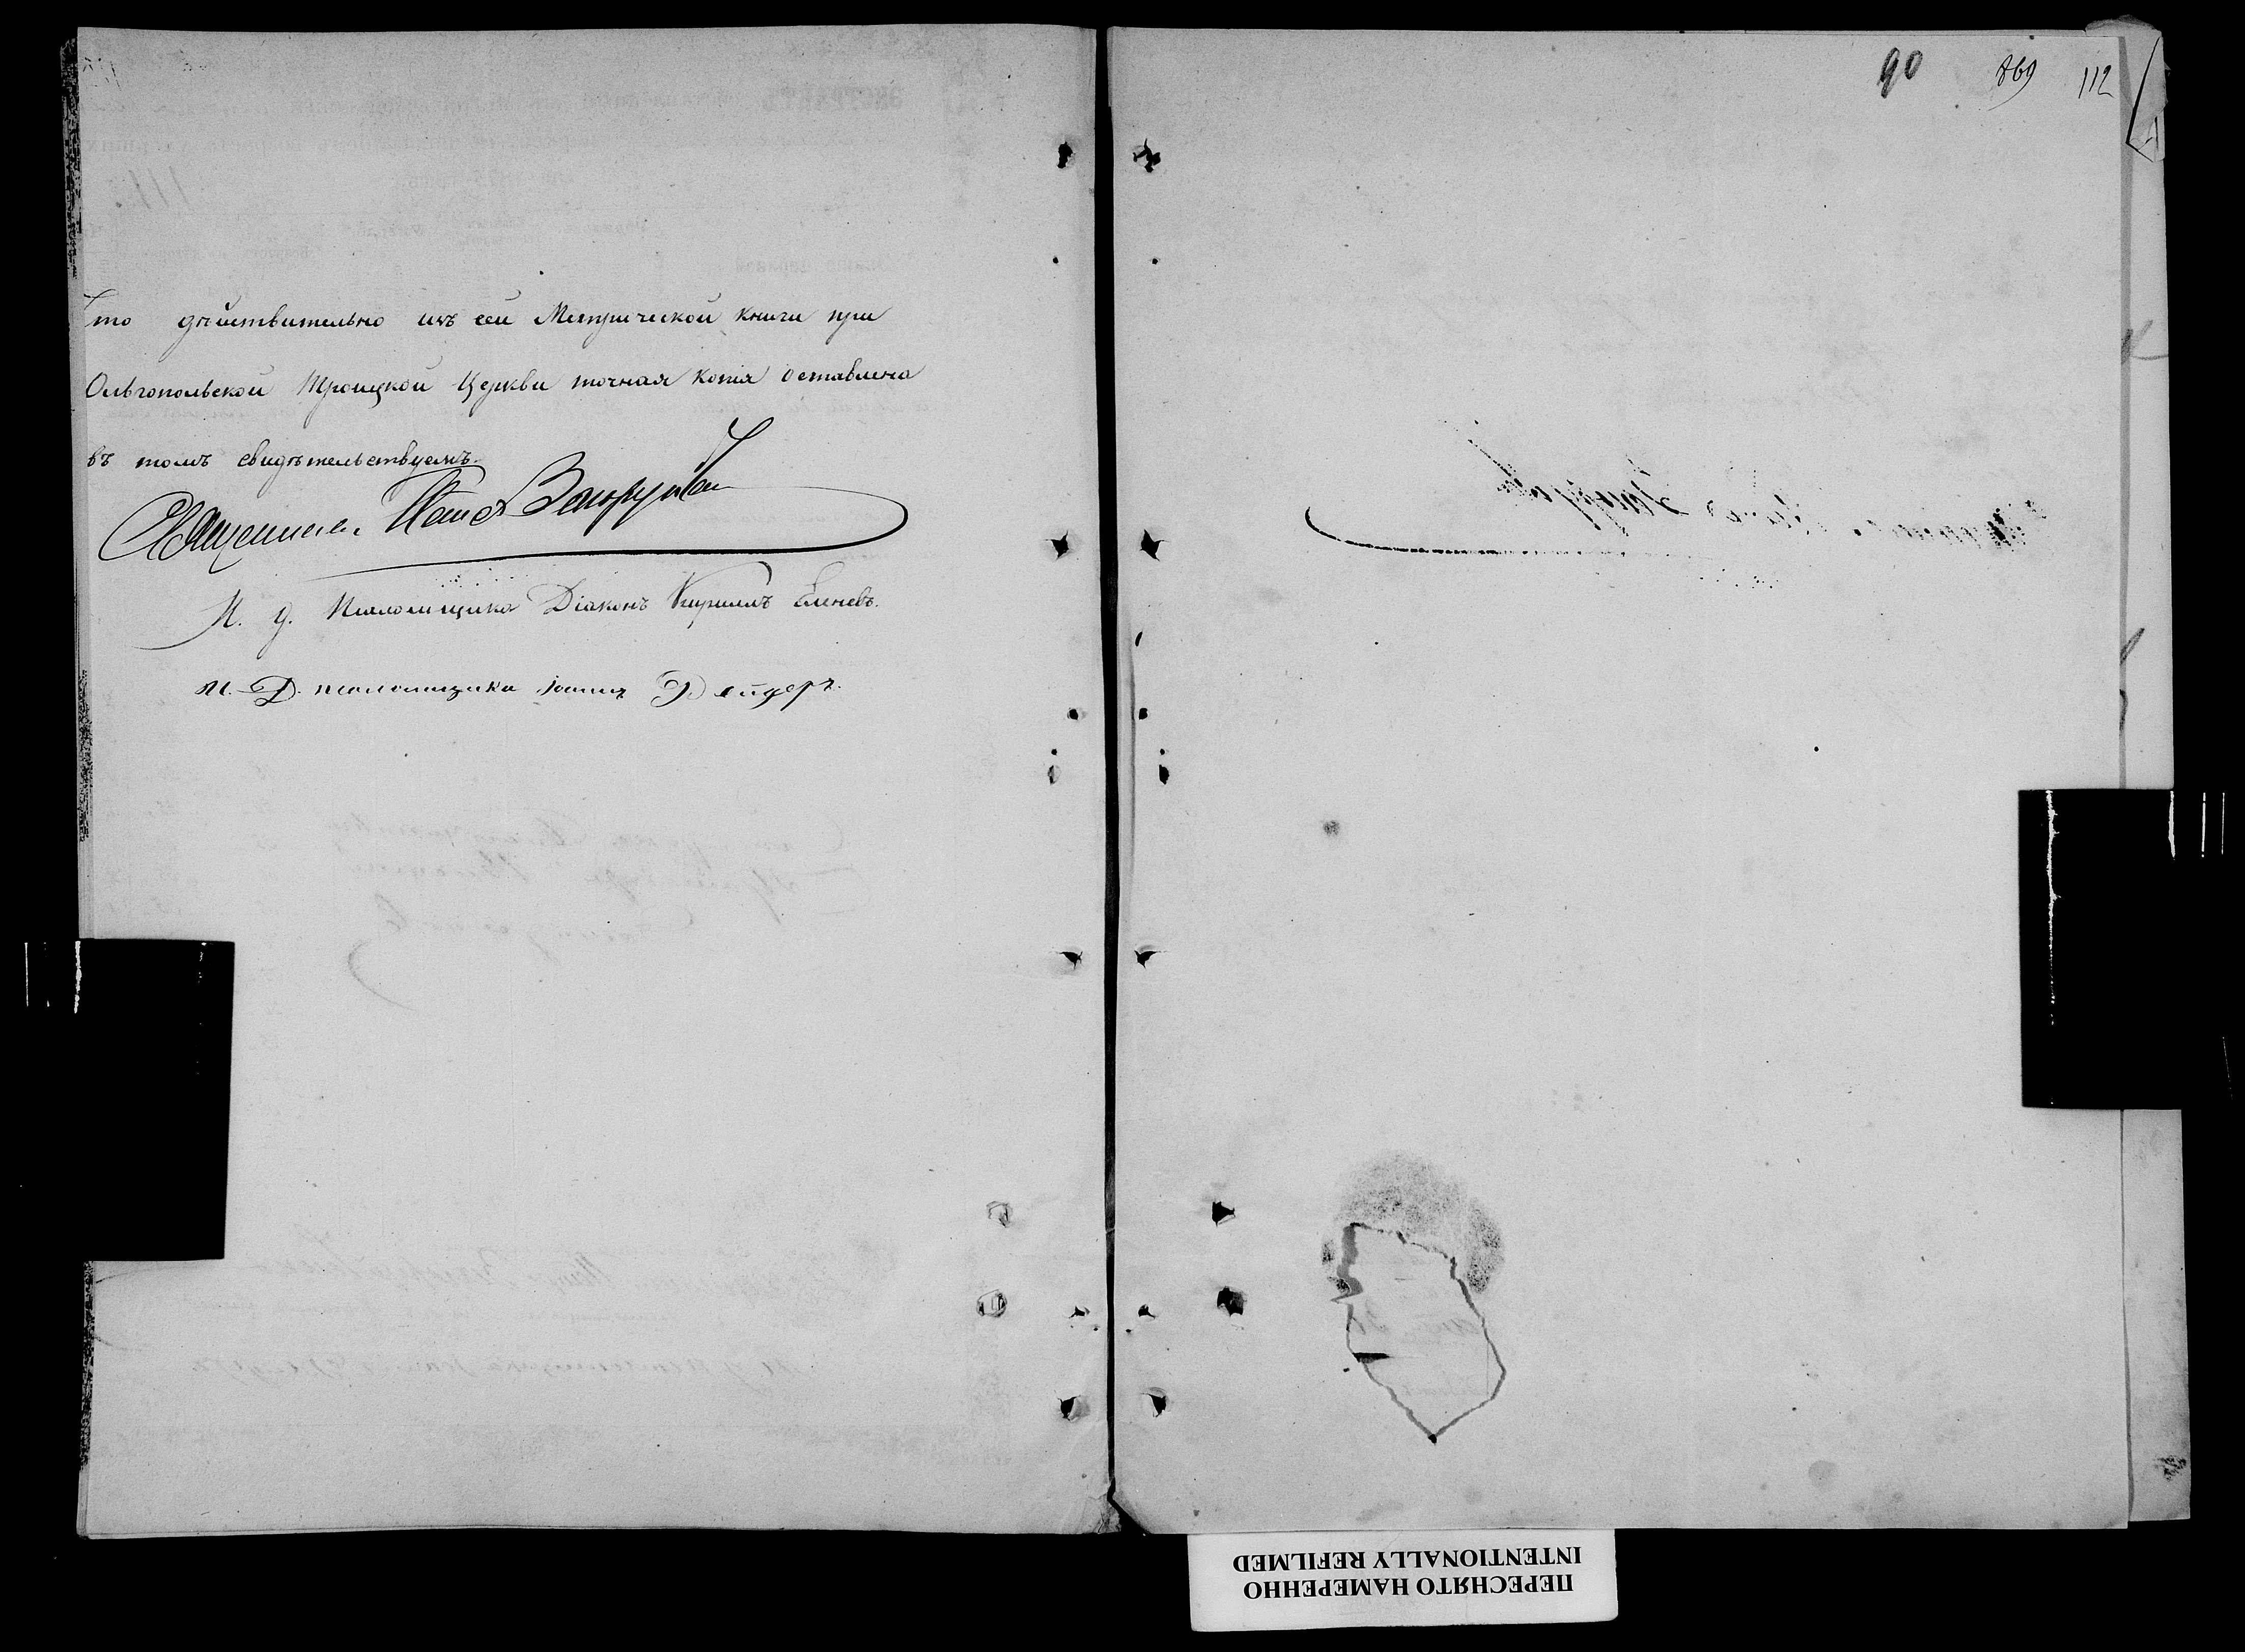 Что дѣйствительно изъ сей Метрической книги при
Ольгопольской Троицкой Церкви точная копія оставлена
въ томъ свидѣтельствуемъ.
Священникъ
И. д. Псаломщика Діаконъ Кириллъ Еленевъ.
И. Д. псаломщика Іоаннъ
90 869 112
ПЕРЕСНЯТО НАМЕРЕННО
INTENTIONALLY REFILMED